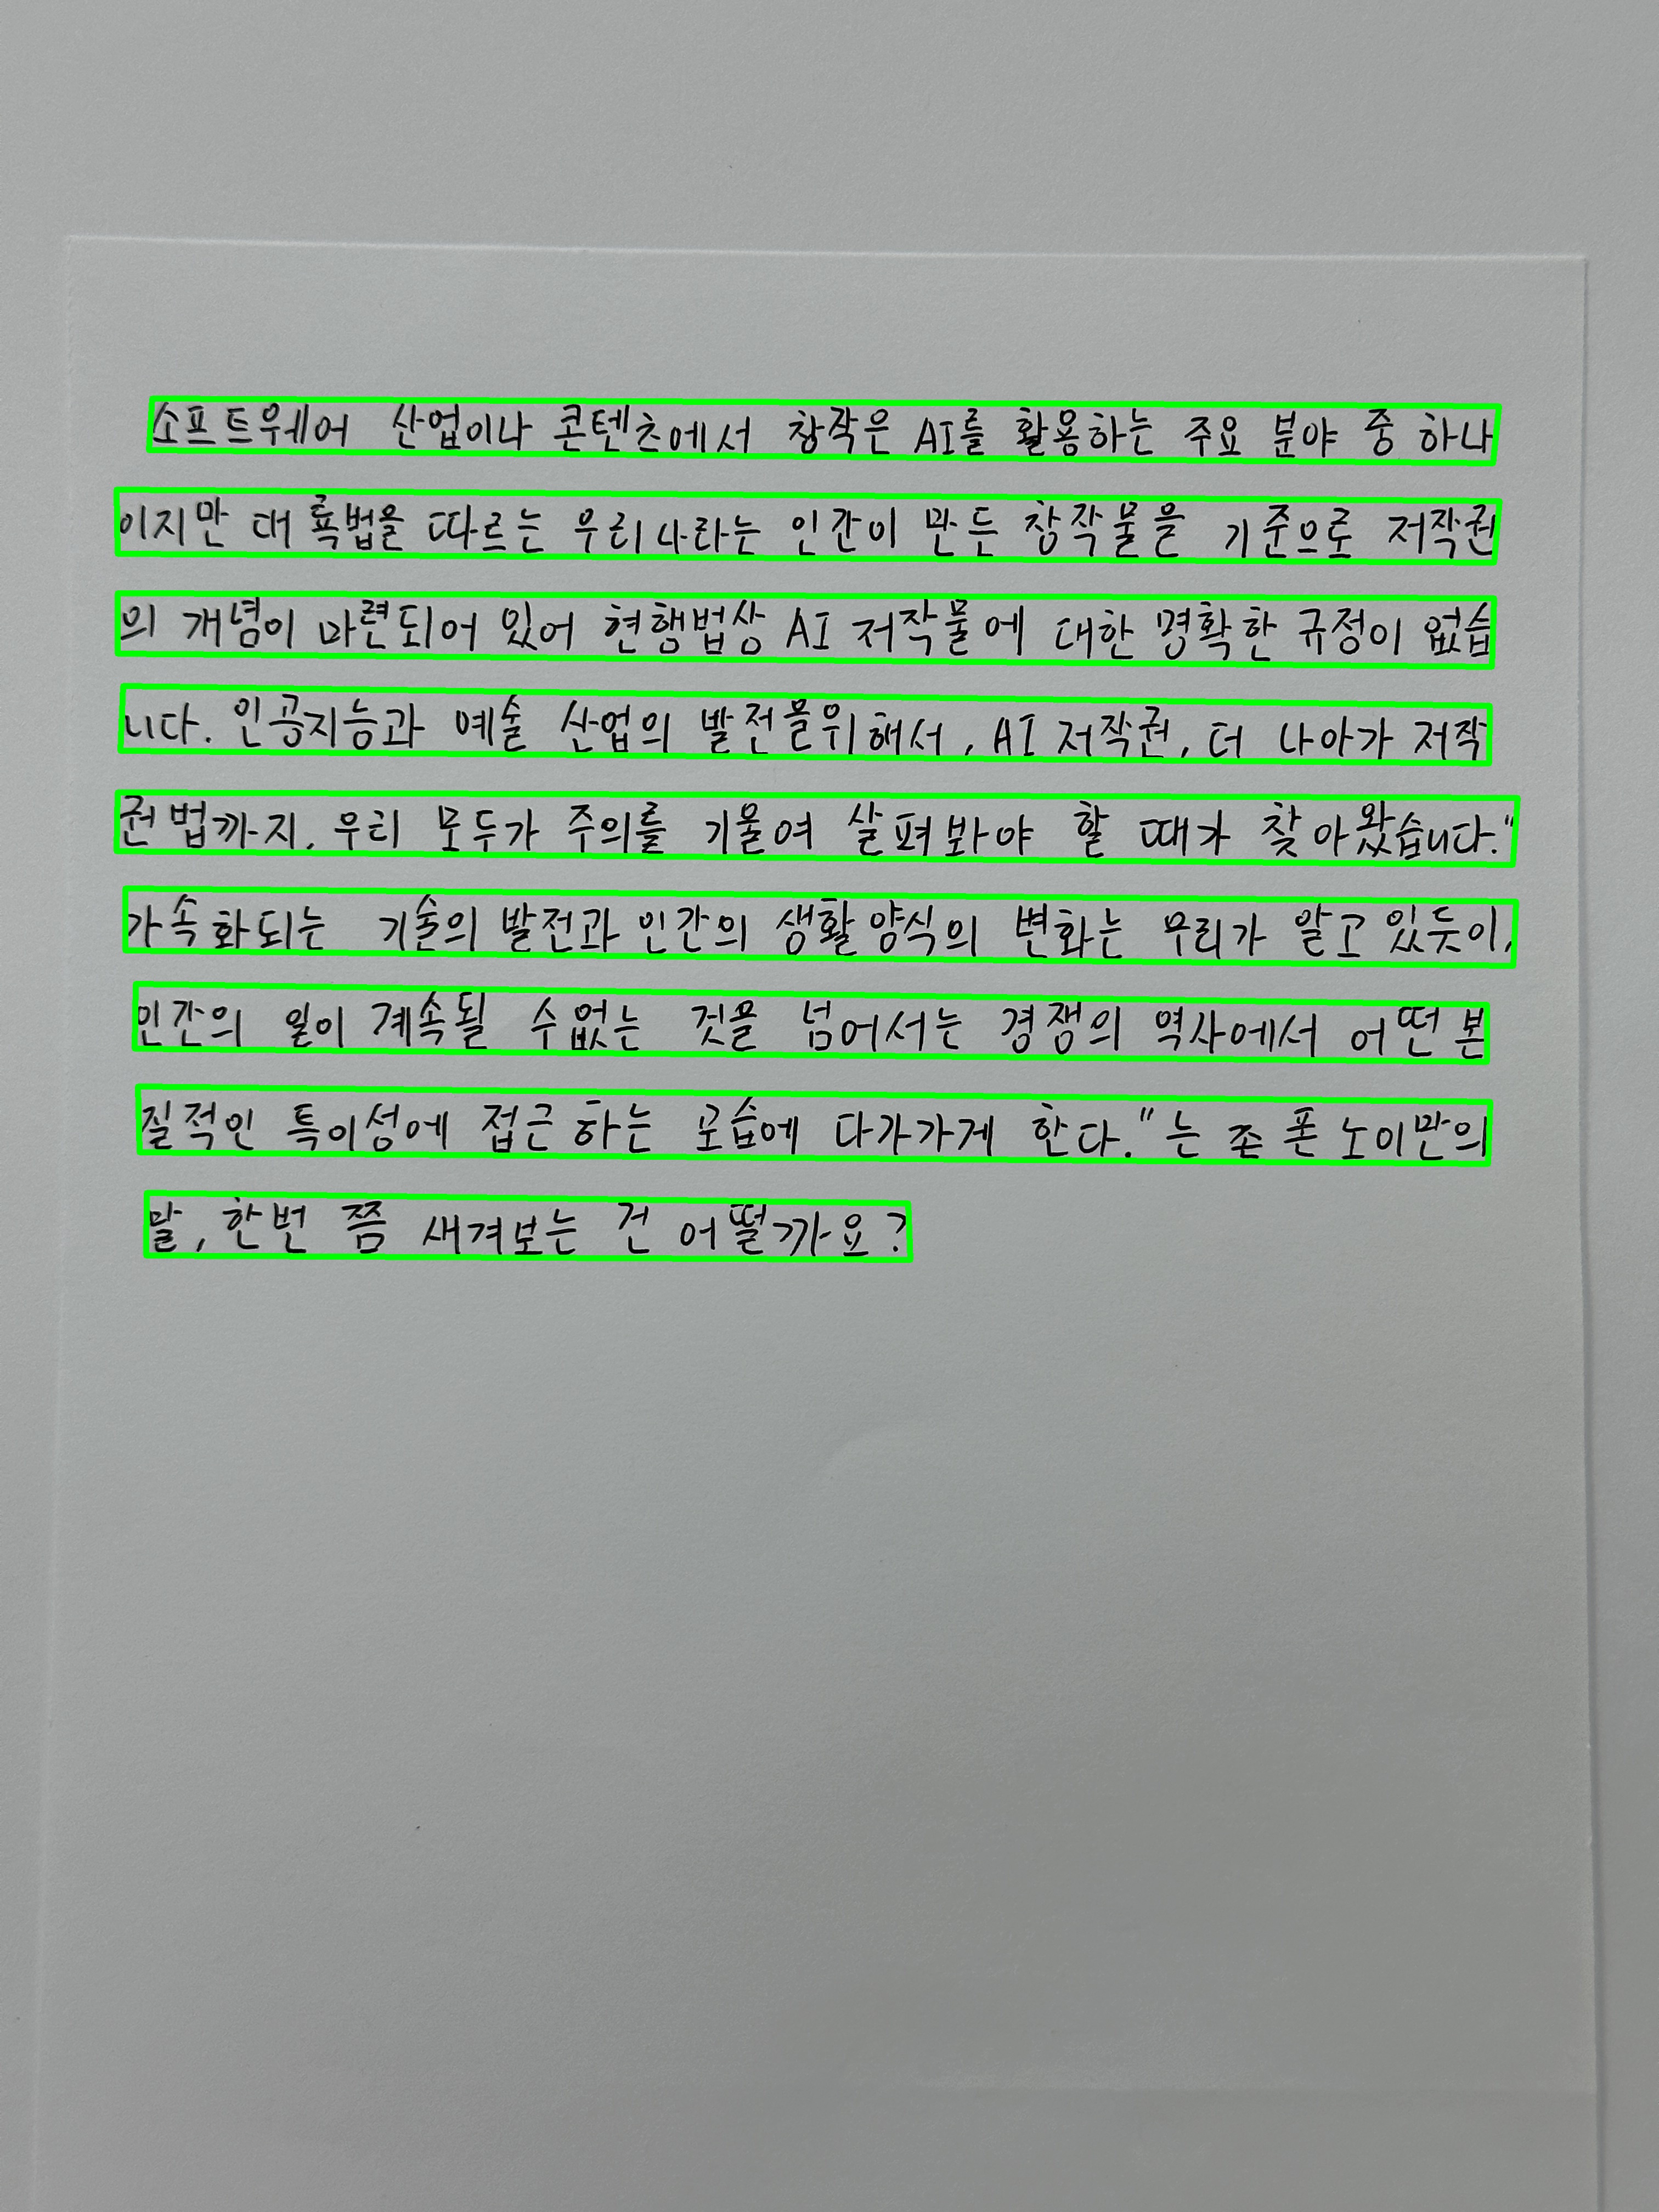 소프트웨어 산업이나 콘텐츠에서 창작은 AI를 활용하는 주요 분야 중 하나
이지만 대륙법을 따르는 우리나라는 인간이 만든 창작물을 기준으로 저작권
의 개념이 마련되어 있어 현행법상 AI 저작물에 대한 명확한 규정이 없습
니다. 인공지능과 예술 산업의 발전을위해서, AI 저작권, 더 나아가 저작
권법까지, 우리 모두가 주의를 기울여 살펴봐야 할 때가 찾아왔습니다."
가속화되는 기술의 발전과 인간의 생활양식의 변화는 우리가 알고있듯이,
인간의 일이 계속될 수없는 것을 넘어서는 경쟁의 역사에서 어떤 본
질적인 특이성에 접근하는 모습에 다가가게 한다."는 존 폰 노이만의
말, 한번 쯤 새겨보는 건 어떨까요?